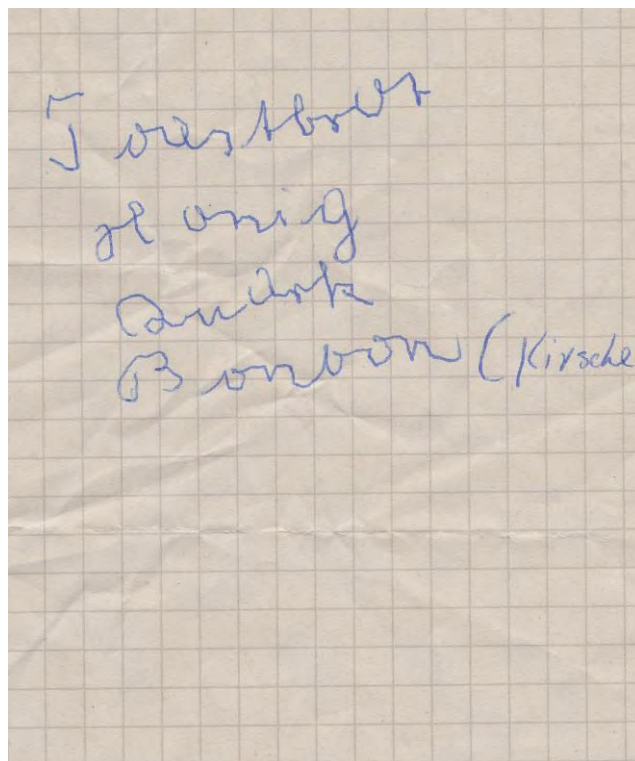 Toastbrot
Honig
Quark
Bonbon (Kirsche